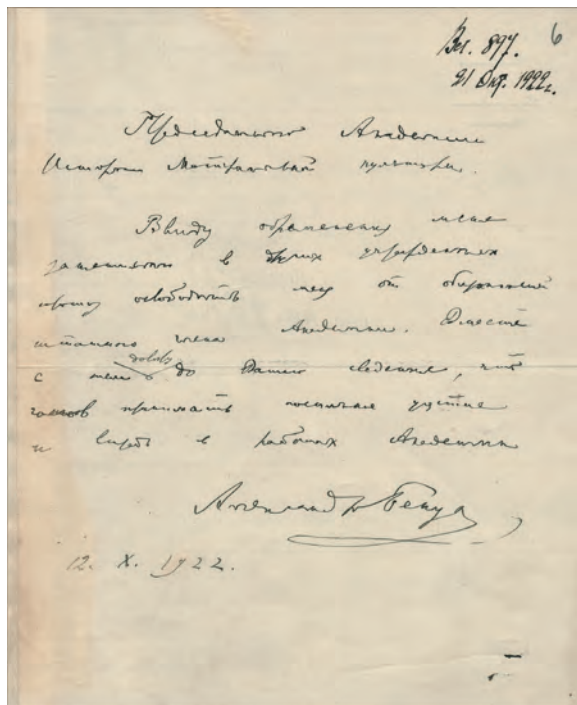 Вх. 897. 6
21 Окт. 1922 г.
Председателю Академии
Истории Материальной культуры.
Ввиду обременения меня
занятиями в других учреждениях
прошу освободить меня от обязанностей
штатного члена Академии. Вместе
довожу
с тем до Вашего сведения, что
готов принимать посильное участие
и впредь в работах Академии
Александр Бенуа
12. X. 1922.